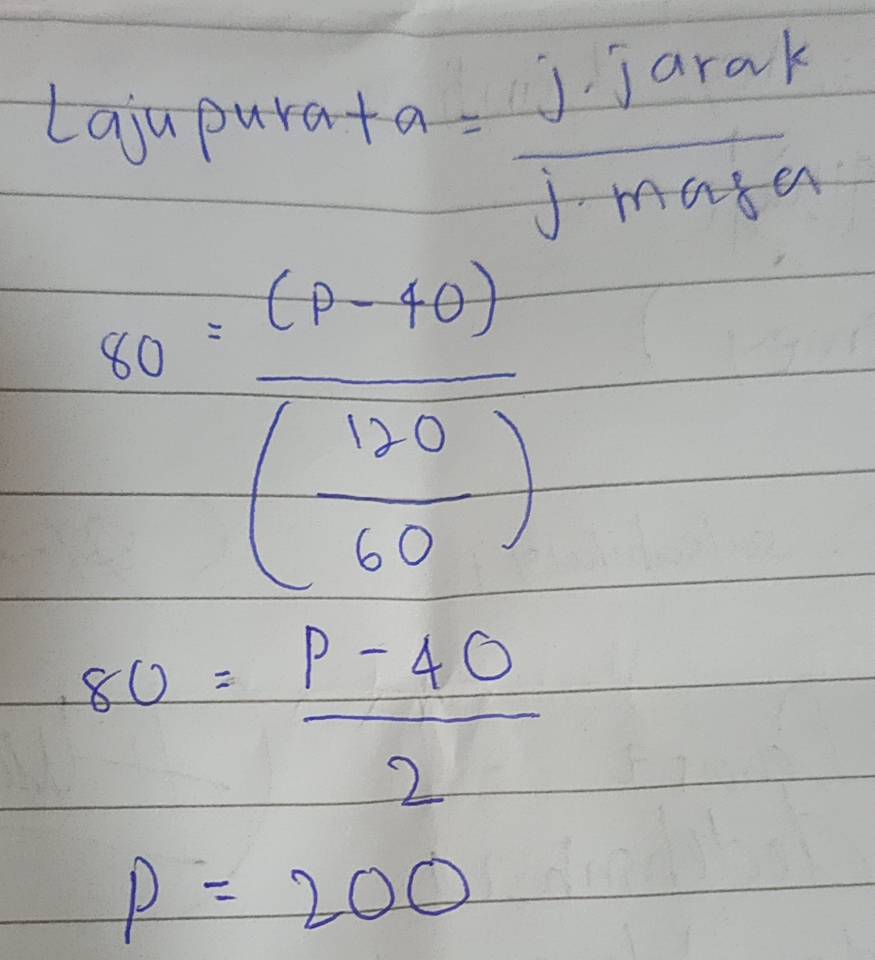 Laju purata = j. jarak
j. masa
80 = (P - 40)
(120
60)
80 = P - 40
2
P = 200